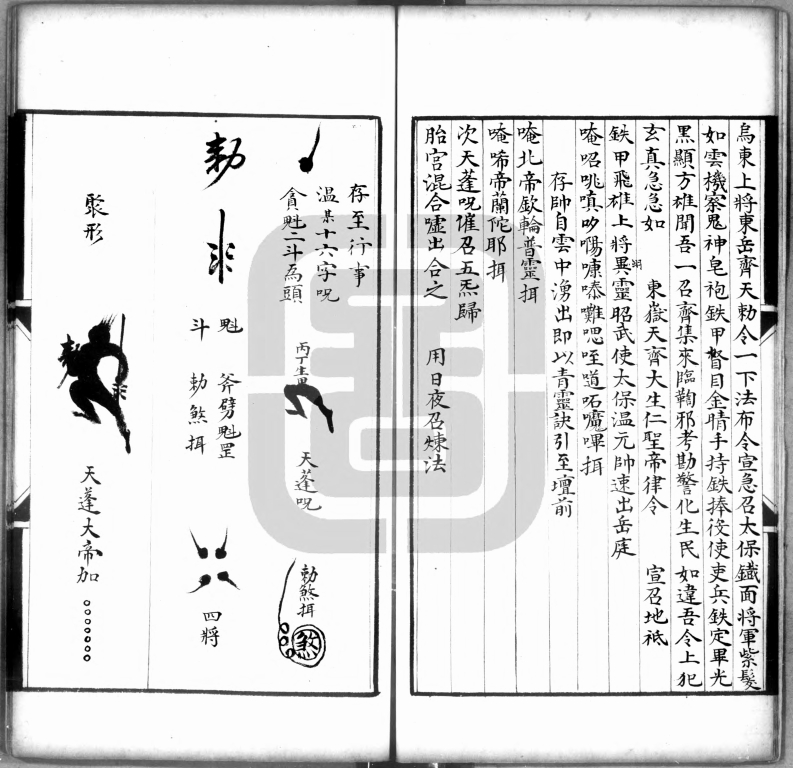 烏東上將東岳齊天勅令一下法布令宣急召太保鐵面將軍紫髮
如雲機察鬼神皂袍鉄甲瞀目金睛手持鉄捧役使吏兵鉄定畢光
黑顯方雄聞吾一召齊集來臨鞫邪考勘警化生民如違吾令上犯
玄真急急如 東嶽天齊大生仁聖帝律令 宣召地祇
鉄甲飛雄上將異靈昭武使太保温元帥速出岳庭
唵
存帥自雲中湧出即以青靈訣引至壇前
唵北帝欽輪普靈揖
唵唏帝蘭陀耶揖
次天蓬呪催召五炁歸
胎宮混合噓出合之 用日夜召煉法
存至行事
温某十六字呪
貪魁二斗為頭
丙丁生
天蓬呪
勅煞揖
煞
勅
魁 斧劈魁罡
斗 勅煞揖
四將
聚形
天蓬大帝加